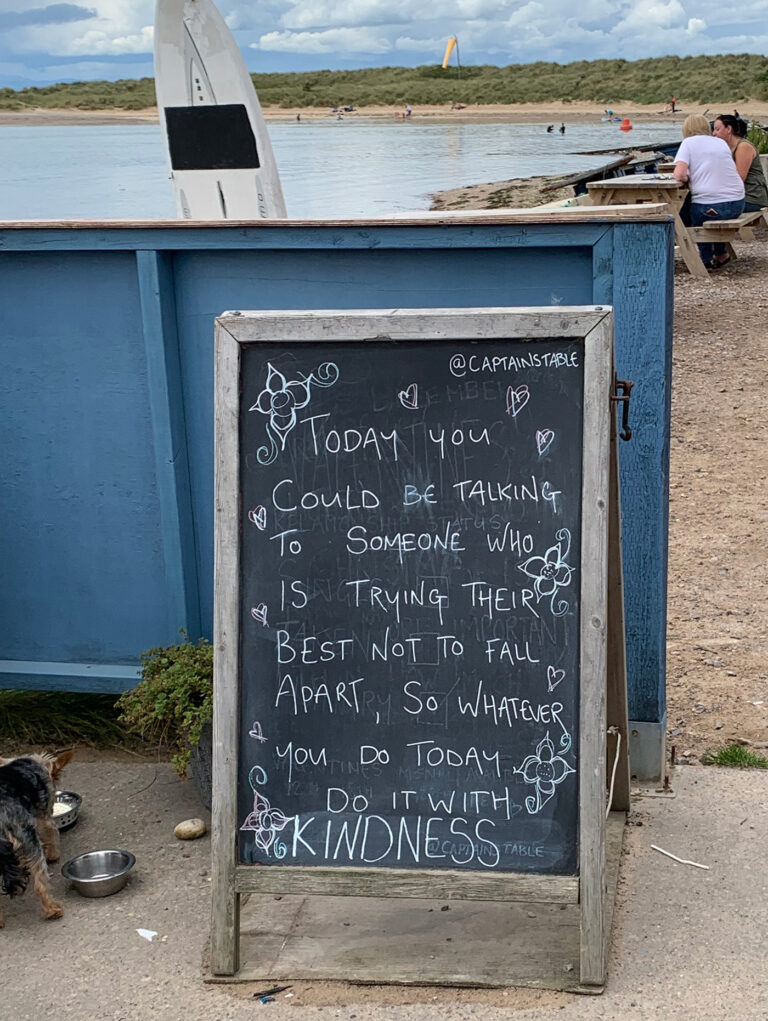 @CAPTAINSTABLE
TODAY YOU
COULD BE TALKING
TO SOMEONE WHO
IS TRYING THEIR
BEST NOT TO FALL
APART, SO WHATEVER
YOU DO TODAY
DO IT WITH
KINDNESS
@CAPTAINSTABLE